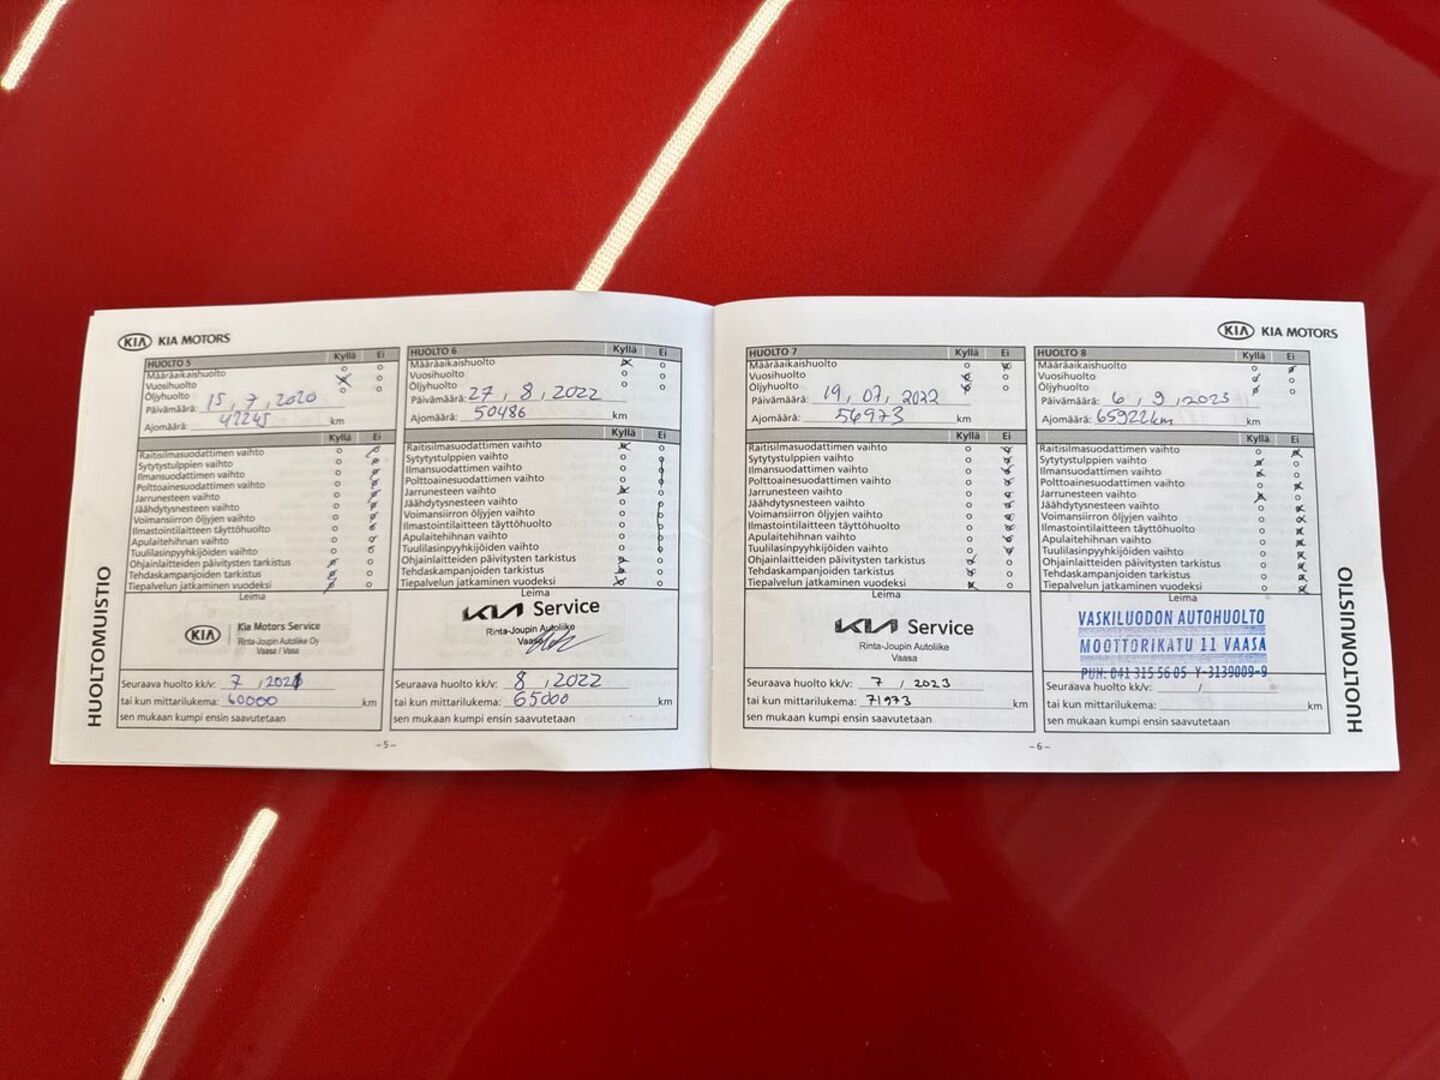 KIA KIA MOTORS
HUOLTO 5 Kyllä Ei
Määräaikaishuolto
Vuosihuolto
Öljyhuolto
Päivämäärä: 15, 7, 2020
Ajomäärä: 42245 km
Kyllä Ei
Raitisilmasuodattimen vaihto
Sytytystulppien vaihto
Ilmansuodattimen vaihto
Polttoainesuodattimen vaihto
Jarrunesteen vaihto
Jäähdytysnesteen vaihto
Voimansiirron öljyjen vaihto
Ilmastointilaitteen täyttöhuolto
Apulaitehihnan vaihto
Tuulilasinpyyhkijöiden vaihto
Ohjainlaitteiden päivitysten tarkistus
Tehdaskampanjoiden tarkistus
Tiepalvelun jatkaminen vuodeksi
Leima
KIA Kia Motors Service
Rinta-Joupin Autoliike Oy
Vaasa / Vasa
Seuraava huolto kk/v: 7, 2021
tai kun mittarilukema: 60000 km
sen mukaan kumpi ensin saavutetaan
HUOLTO 6 Kyllä Ei
Määräaikaishuolto
Vuosihuolto
Öljyhuolto
Päivämäärä: 27, 8, 2022
Ajomäärä: 50486 km
Kyllä Ei
Raitisilmasuodattimen vaihto
Sytytystulppien vaihto
Ilmansuodattimen vaihto
Polttoainesuodattimen vaihto
Jarrunesteen vaihto
Jäähdytysnesteen vaihto
Voimansiirron öljyjen vaihto
Ilmastointilaitteen täyttöhuolto
Apulaitehihnan vaihto
Tuulilasinpyyhkijöiden vaihto
Ohjainlaitteiden päivitysten tarkistus
Tehdaskampanjoiden tarkistus
Tiepalvelun jatkaminen vuodeksi
Leima
KIA Service
Rinta-Joupin Autoliike
Vaasa
Seuraava huolto kk/v: 8, 2022
tai kun mittarilukema: 65000 km
sen mukaan kumpi ensin saavutetaan
HUOLTOMUISTIO
-5-
KIA KIA MOTORS
HUOLTO 7 Kyllä Ei
Määräaikaishuolto
Vuosihuolto
Öljyhuolto
Päivämäärä: 19, 07, 2022
Ajomäärä: 56973 km
Kyllä Ei
Raitisilmasuodattimen vaihto
Sytytystulppien vaihto
Ilmansuodattimen vaihto
Polttoainesuodattimen vaihto
Jarrunesteen vaihto
Jäähdytysnesteen vaihto
Voimansiirron öljyjen vaihto
Ilmastointilaitteen täyttöhuolto
Apulaitehihnan vaihto
Tuulilasinpyyhkijöiden vaihto
Ohjainlaitteiden päivitysten tarkistus
Tehdaskampanjoiden tarkistus
Tiepalvelun jatkaminen vuodeksi
Leima
KIA Service
Rinta-Joupin Autoliike
Vaasa
Seuraava huolto kk/v: 7 / 2023
tai kun mittarilukema: 71973 km
sen mukaan kumpi ensin saavutetaan
HUOLTO 8 Kyllä Ei
Määräaikaishuolto
Vuosihuolto
Öljyhuolto
Päivämäärä: 6, 9, 2023
Ajomäärä: 65922km km
Kyllä Ei
Raitisilmasuodattimen vaihto
Sytytystulppien vaihto
Ilmansuodattimen vaihto
Polttoainesuodattimen vaihto
Jarrunesteen vaihto
Jäähdytysnesteen vaihto
Voimansiirron öljyjen vaihto
Ilmastointilaitteen täyttöhuolto
Apulaitehihnan vaihto
Tuulilasinpyyhkijöiden vaihto
Ohjainlaitteiden päivitysten tarkistus
Tehdaskampanjoiden tarkistus
Tiepalvelun jatkaminen vuodeksi
Leima
VASKILUODON AUTOHUOLTO
MOOTTORIKATU 11 VAASA
PUH. 041 315 56 05 Y-3139009-9
Seuraava huolto kk/v: /
tai kun mittarilukema: km
sen mukaan kumpi ensin saavutetaan
HUOLTOMUISTIO
-6-